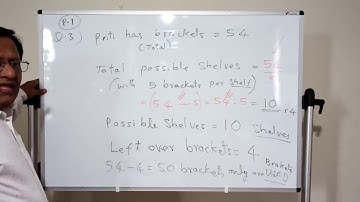 P-1
Q.3) Priti has brackets = 54
(Total)
Total possible Shelves = 54
(with 5 brackets per shelf)
= (54 ÷ 5) = 54 ÷ 5 = 10 r 4
Possible Shelves = 10 Shelves
Left over brackets = 4 Brackets
54 - 4 = 50 brackets only are USED